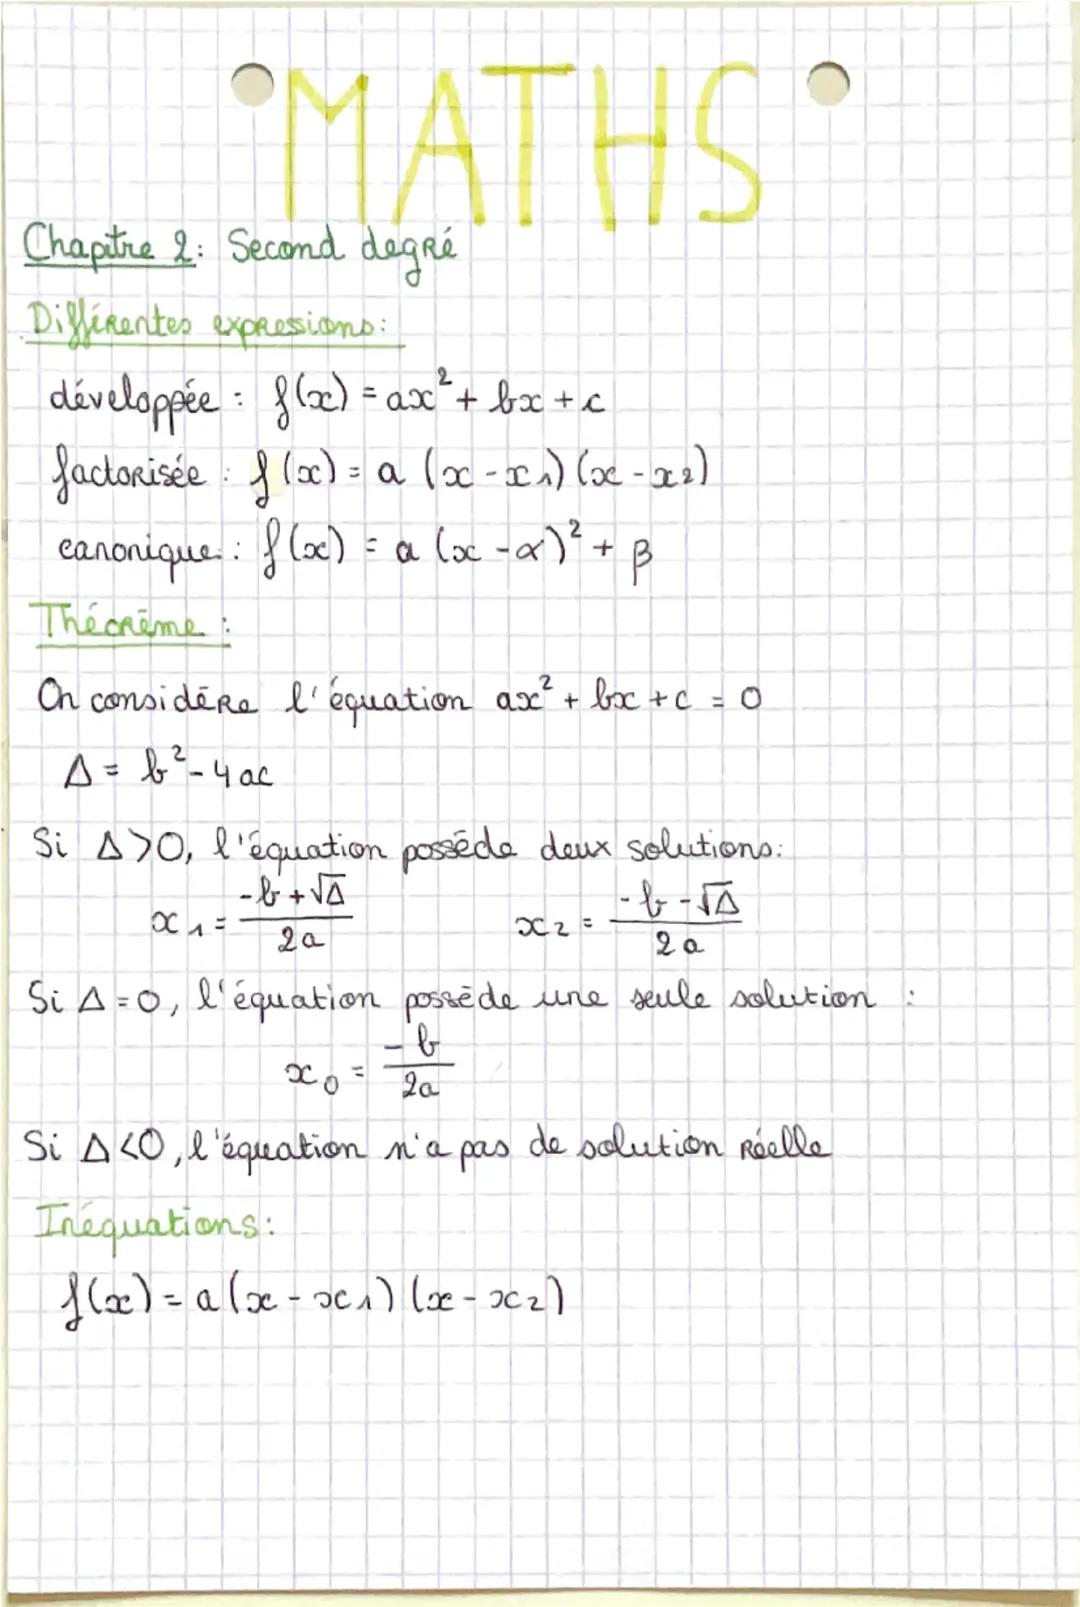 MATHS
Chapitre 2: Second degré
Différentes expressions:
développée : f(x) = ax² + bx + c
factorisée : f(x) = a (x - x₁) (x - x₂)
canonique : f(x) = a (x - α)² + β
Théorème :
On considère l'équation ax² + bx + c = 0
Δ = b² - 4ac
Si Δ>0, l'équation possède deux solutions:
x₁ = (-b + √Δ)/2a    x₂ = (-b - √Δ)/2a
Si Δ = 0, l'équation possède une seule solution :
x₀ = -b/2a
Si Δ<0, l'équation n'a pas de solution réelle
Inéquations:
f(x) = a (x - x₁) (x - x₂)